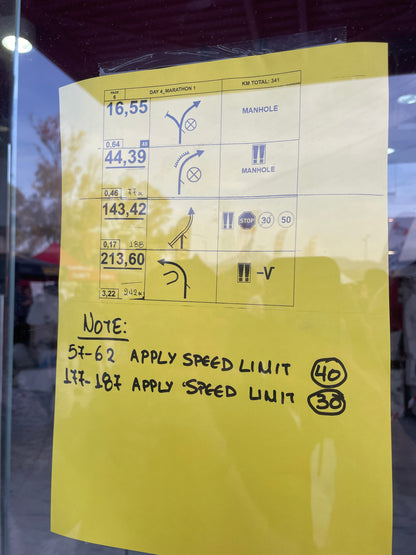 PAGE 5 DAY 4_MARATHON 1 KM TOTAL: 341
16,55 MANHOLE
0,64
44,39 !! MANHOLE
0,46
143,42 !! STOP 30 50
0,17 188
213,60 !! -V
3,22
NOTE:
57-62 APPLY SPEED LIMIT 40
177-187 APPLY SPEED LIMIT 30